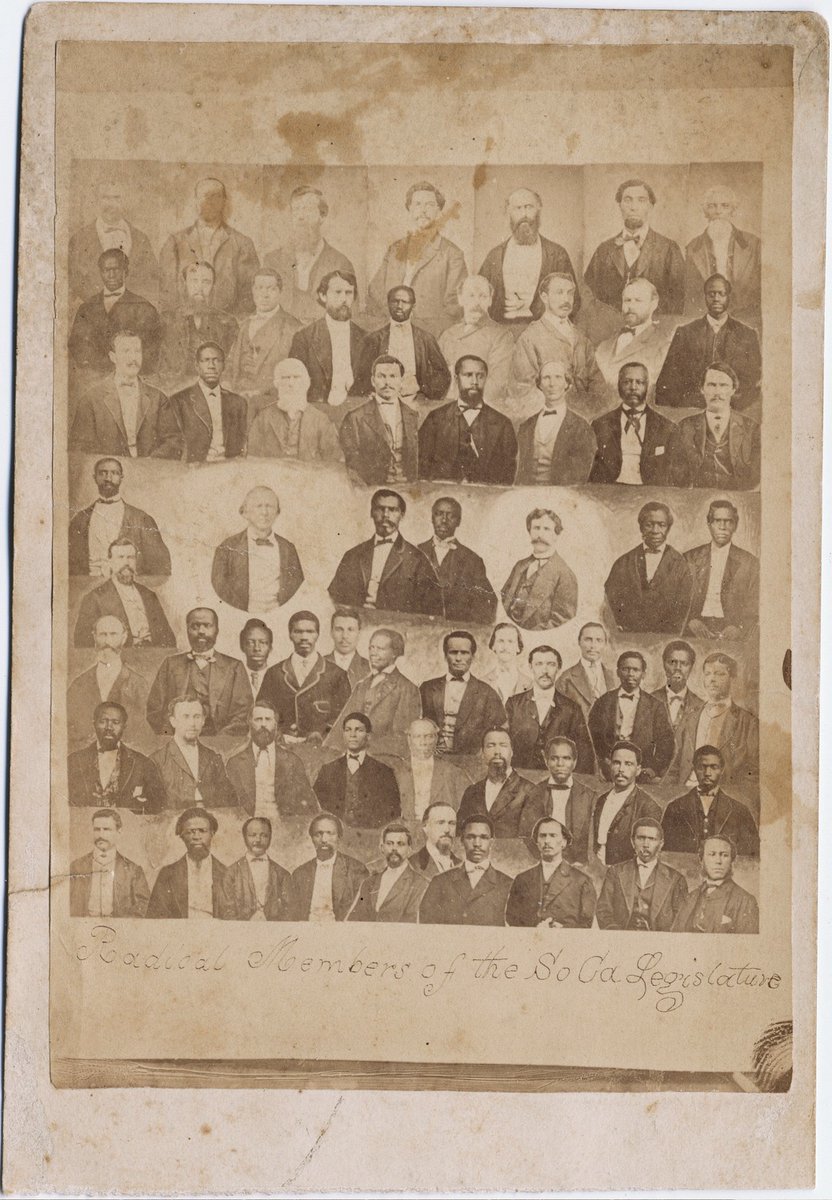 Radical Members of the So Ca Legislature